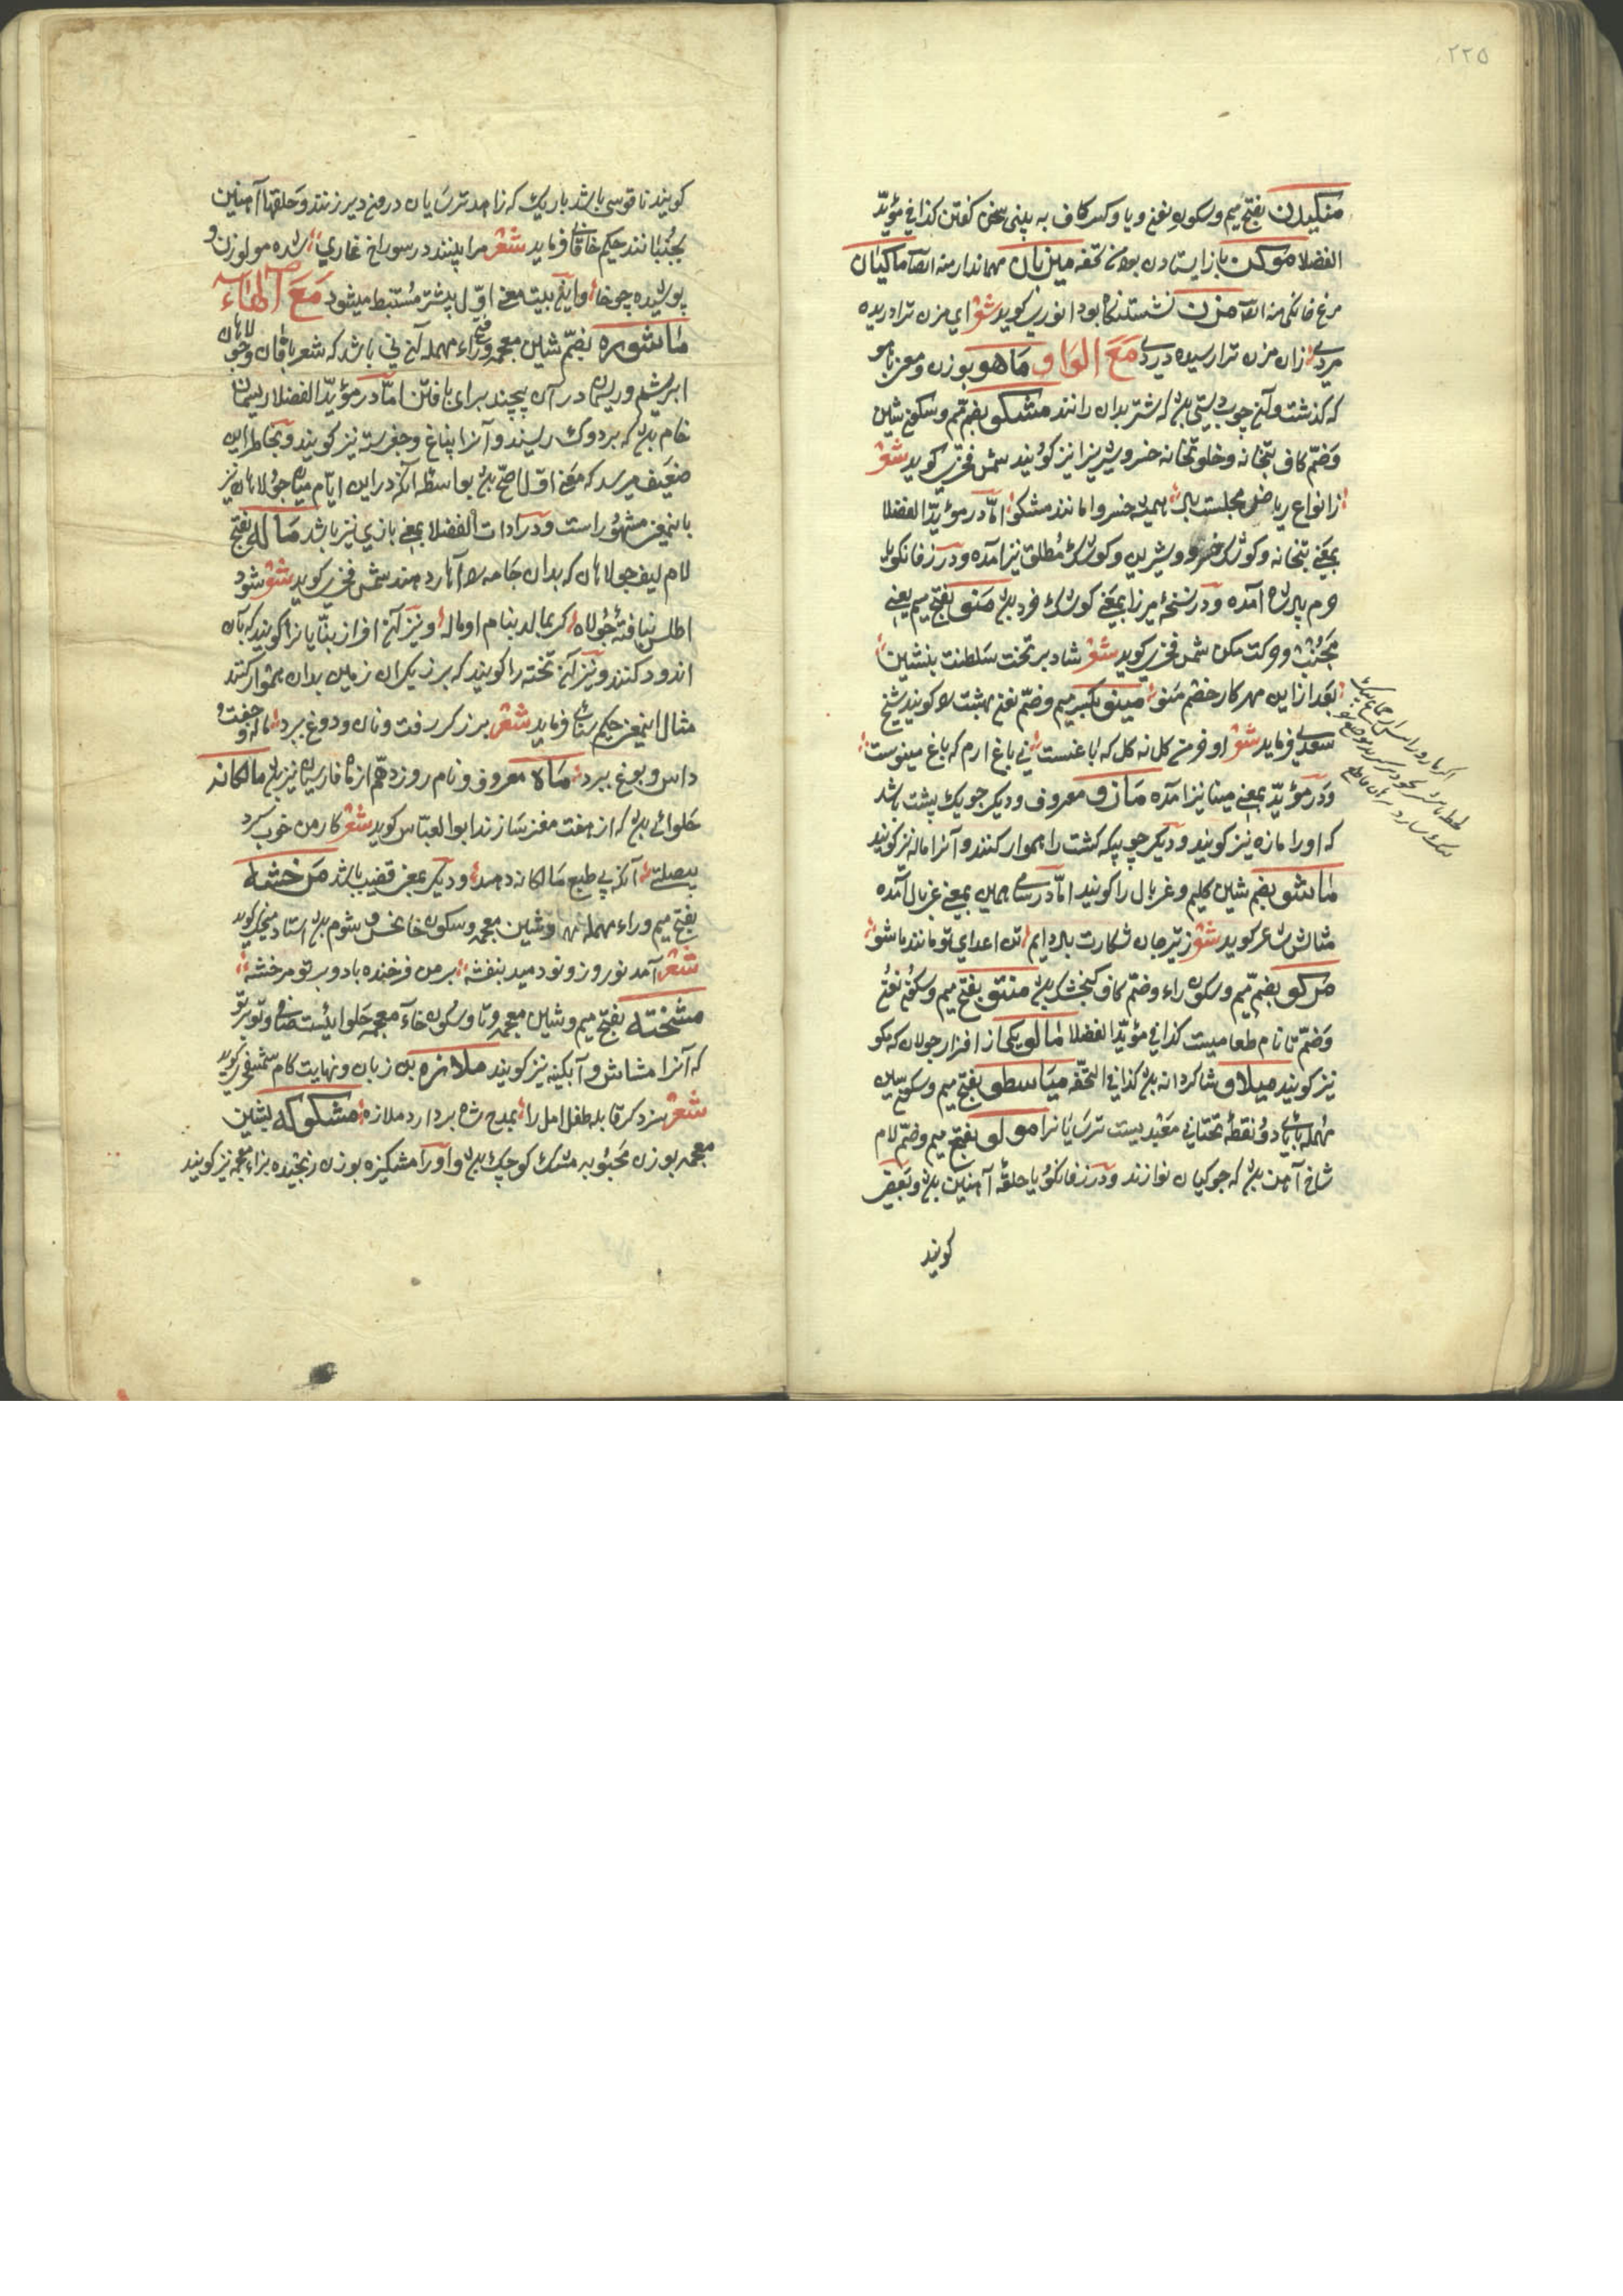 ۲۲۵
منکیدن بفتح میم و سکون نون و یا و کسر کاف به بینی سخن گفتن کذا فی مؤیّد
الفضلا موکن باز ایستادن تحفه میزبان مهماندار منه ایضا ماکیان
مرغ خانکی منه ایضا مزن نشستنکاه بود انوری کوید شعر ای مزن ترا دریده
مردی زان مزن ترا رسیده دردی مَعَ الوَاو ماهو بوزن و معنی باهو
که کذشت و آن چوب دستی بود که شتر بدان رانند مشکو بضم میم و سکون شین
وضمّ کاف بتخانه و خلوتخانه خسرو شیرین را نیز کویند شمس فخری کوید شعر
ز انواع ریاض مجلست باد همیشه خسروا مانند مشکو امّا در مؤیّد الفضلا
بمعنی بتخانه و کوشک خسرو و شیرین و کوشک مُطلق نیز آمده و در زفانکویا
حرم پادشاه آمده و در نسخهٔ میرزا بمعنی کوشک خرد بود منو بفتح میم یعنی
مجُنب و حرکت مکن شمس فخری کوید شعر شاد بر تخت سلطنت بنشین
بعد ازاین مهر کار خصم منو مینو بکسر میم و ضمّ نون بهشت را کویند شیخ
سعدی فرماید شعر او خرمن کل نه کل که باغست نی باغ ارم که باغ مینوست
و در مؤیّد بمعنی مینا نیز آمده مازو معروف و دیکر چوبک پشت باشد
که او را مازه نیز کویند و دیکر چوبیکه کشت را هموار کنند و آنرا ماله نیز کویند
ماشو بضم شین کلیم و غربال را کویند امّا در سامی همین بمعنی غربال آمده
مثالش شاعر کوید شعر ز تیر جان شکارت باد دایم تن اعدای تو مانند ماشو
مرکو بضم میم و سکون راء و ضمّ کاف کنجشک بود منتو بفتح میم و سکون نون
وضمّ تا نام طعامیست کذا فی مؤیّد الفضلا مالو یکی از افزار جولاه که مکو
نیز کویند میلاو شاکردانه بود کذا فی التحفه میاسطو بفتح میم و سکون سین
مُهمله با یای دو نقطهٔ تحتانی معبدیست ترسایانرا مولو بفتح میم و ضمّ لام
شاخ آهن بود که جوکیان نوازند و در زفانکویا حلقه آهنین بود و بعضی
کویند
کویند ناقوسی باشد باریک که زاهد ترسایان درون دیر زنند و حلقها آهنین
بجُنبانند حکیم خاقانی فرماید شعر مرا بینند در سوراخ غاری شده مولوزن و
پوشیده چوخا و این بیت معنی اوّل بیشتر مُستنبط میشود مَعَ الْهَاء
ماشوره بضمّ شین معجمه و فتح راء مهمله آن نی باشد که شعربافان و جولاهان
ابریشم و ریسمان در آن پیچند برای بافتن امّا در مؤیّد الفضلا ریسمان
خام بود که بر دوک ریسند و آنرا پناغ و جغرسته نیز کویند و بخاطر این
ضعیف میرسد که معنی اوّل اصحّ بود بواسطه آنکه در این ایّام میان جولاهان نیز
باینمعنی مشهُور است و در ادات الفضلا بمعنی بازی نیز باشد ماله بفتح
لام لیف جولاهان که بدان جامه را آهار دهند شمس فخری کوید شعر شود
اطلس نبافتهٔ جُولاه کر بمالد بنام او ماله و نیز آن افراز بنّایانرا کویند که بآن
اندود کنند و نیز آن تخته را کویند که برزیکران زمین بدان هموار کنند
مثال اینمعنی حکیم سنائی فرماید شعر برزکر رفت و نان و دوغ ببرد ماله و جفت و
داس و یوغ ببرد ماه معروف و نام روز دهم از ماه فارسیان نیز بود مالکانه
حَلوائی بود که از هفت مغز سازند ابو العبّاس کوید شعر کار من خوب کرد
بیصلتی آنکه بی طبع مالکانه دهد و دیکر بمعنی قضیب باشد مرخشه
بفتح میم و راء مهمله و شین معجمه و سکون خا نحس و شوم بود استاد منجیک کوید
شعر آمد نوروز و نو دمید بنفشه بر من فرخنده باد و بر تو مرخشه
مشخته بفتح میم و شین معجمه و تا و سکون خآء معجمه حَلوائیست صافی و تو بر تو
که آنرا مشاش و آبکینه نیز کویند ملازه بن زبان و نهایت کام شمس فخری کوید
شعر سزد کر قابله طفل امل را بمدح شاه بردارد ملازه مشکوکه بشین
معجمه بوزن محبُوبه مشک کوچک بود و او را مشکیزه بوزن رنجیده بزاء معجمه نیز کویند